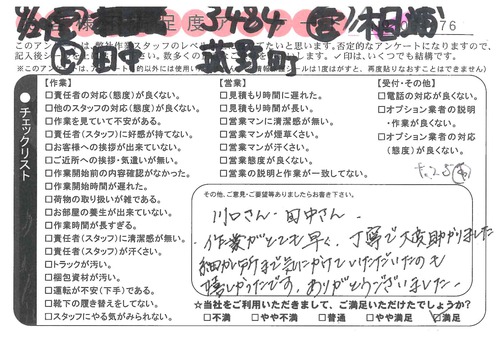 3484 営 相浦
田中 萩野町
このアンケートは、弊社作業スタッフのレベル
否定的なアンケートになりますので、
いくつでも結構です。
【作業】
□責任者の対応(態度)が良くない。
□他のスタッフの対応(態度)が良くない。
□作業を見ていて不安がある。
□責任者(スタッフ)に好感が持てない。
□お客様への挨拶が出来ていない。
□ご近所への挨拶・気遣いが無い。
□作業開始前の内容確認がなかった。
□作業開始時間が遅れた。
□荷物の取り扱いが雑である。
□お部屋の養生が出来ていない。
□作業時間が長すぎる。
□責任者(スタッフ)に清潔感が無い。
□責任者(スタッフ)が汗くさい。
□トラックが汚い。
□梱包資材が汚い。
□運転が不安(下手)である。
□靴下の履き替えをしてない。
□スタッフにやる気がみられない。
チェックリスト
【営業】
□見積もり時間に遅れた。
□見積もり時間が長い。
□営業マンに清潔感が無い。
□営業マンが煙草くさい。
□営業マンが汗くさい。
□営業態度が良くない。
□営業の説明と作業が一致してない。
【受付・その他】
□電話の対応が良くない。
□オプション業者の説明・作業が良くない。
□オプション業者の対応(態度)が良くない。
その他、ご意見・ご要望等ありましたらお書き下さい。
川口さん、田中さん、
作業がとても早く、丁寧で大変助かりました
細かい所まで気にかけていただいたのも
嬉しかったです。ありがとうございました。
☆当社をご利用いただきまして、ご満足いただけたでしょうか?
□不満 □やや不満 □普通 □やや満足 □満足